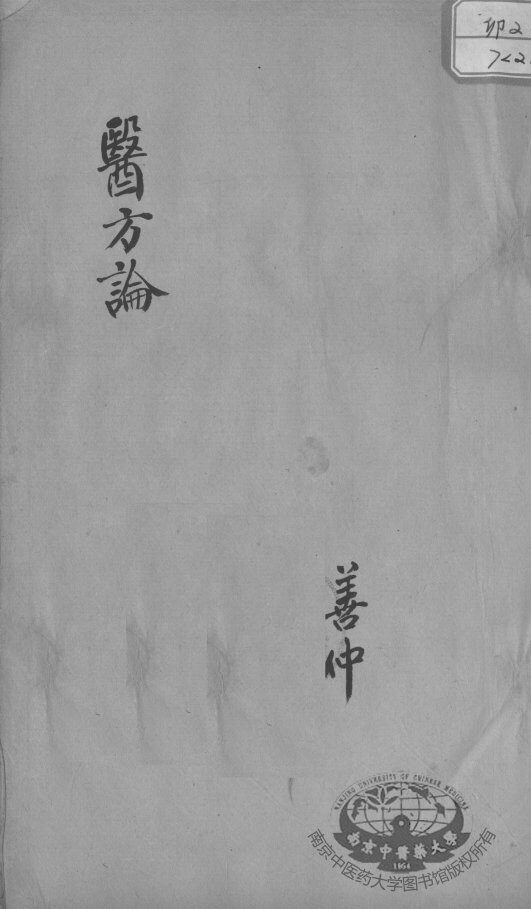 卯2
7<2.
醫方論
善仲
NANJING UNIVERSITY OF CHINESE MEDICINE
南京中醫藥大學
1954
南京中医药大学图书馆版权所有